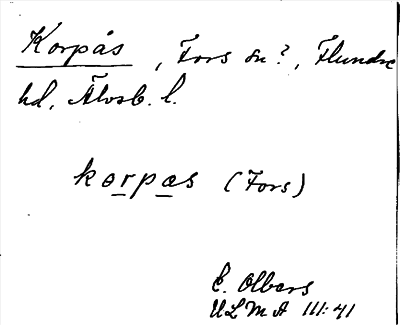 Korpås, Fors sn?, Flundre
hd, Älvsb. l.
korpas (Fors)
E. Olbers
ULMA 111:41